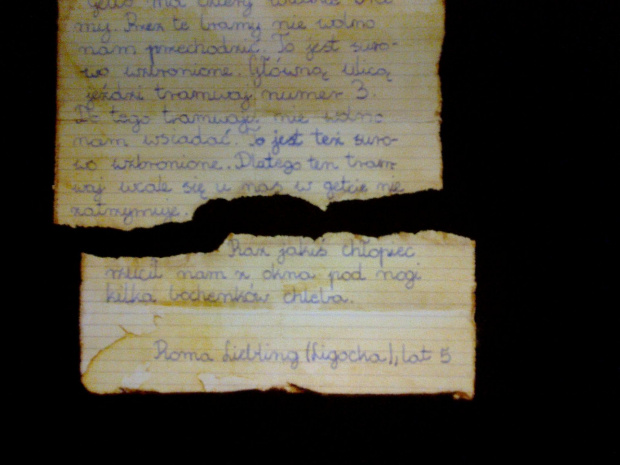 Getto ma cztery
my. Przez te bramy nie wolno
nam przechodzić. To jest suro-
wo wzbronione. Główną ulicą
jeździ tramwaj numer 3.
Do tego tramwaju nie wolno
nam wsiadać. To jest też suro-
wo wzbronione. Dlatego ten tram-
waj wcale się u nas w getcie nie
zatrzymuje.
Raz jakiś chłopiec
rzucił nam z okna pod nogi
kilka bochenków chleba.
Roma Liebling (Ligocka), lat 5